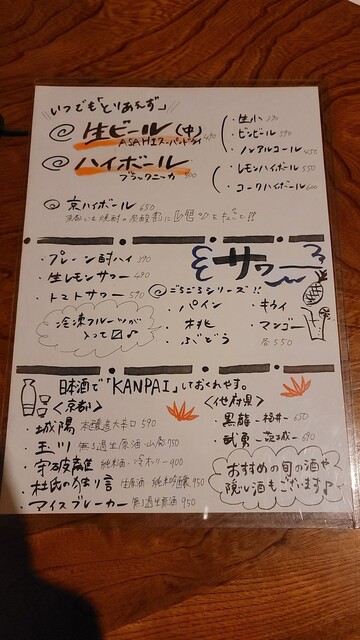 いつでも「とりあえず」
生ビール(中) 490
ASAHIスーパードライ
ハイボール
ブラックニッカ 500
・生小 290
・ビンビール 590
・ノンアルコール 450
・レモンハイボール 550
・コークハイボール 600
京ハイボール 650
サワー
・プレーン酎ハイ 390
・生レモンサワー 490
・トマトサワー 590
冷凍フルーツが
入って
ごろごろシリーズ!!
・パイン
・キウイ
・桃
・マンゴー
・ぶどう
各550
日本酒で「KANPAI」しておくれやす。
<京都>
・城陽 本醸造大辛口 590
・玉川 無ろ過生原酒・山廃 750
純米酒・冷 900
・杜氏の独り言 生原酒 純米吟醸 950
・アイスブレーカー 無ろ過生原酒 950
<他府県>
・黒龍 - 福井 - 650
・武勇 - 茨城 - 690
おすすめの旬の酒や
隠し酒もございます♪